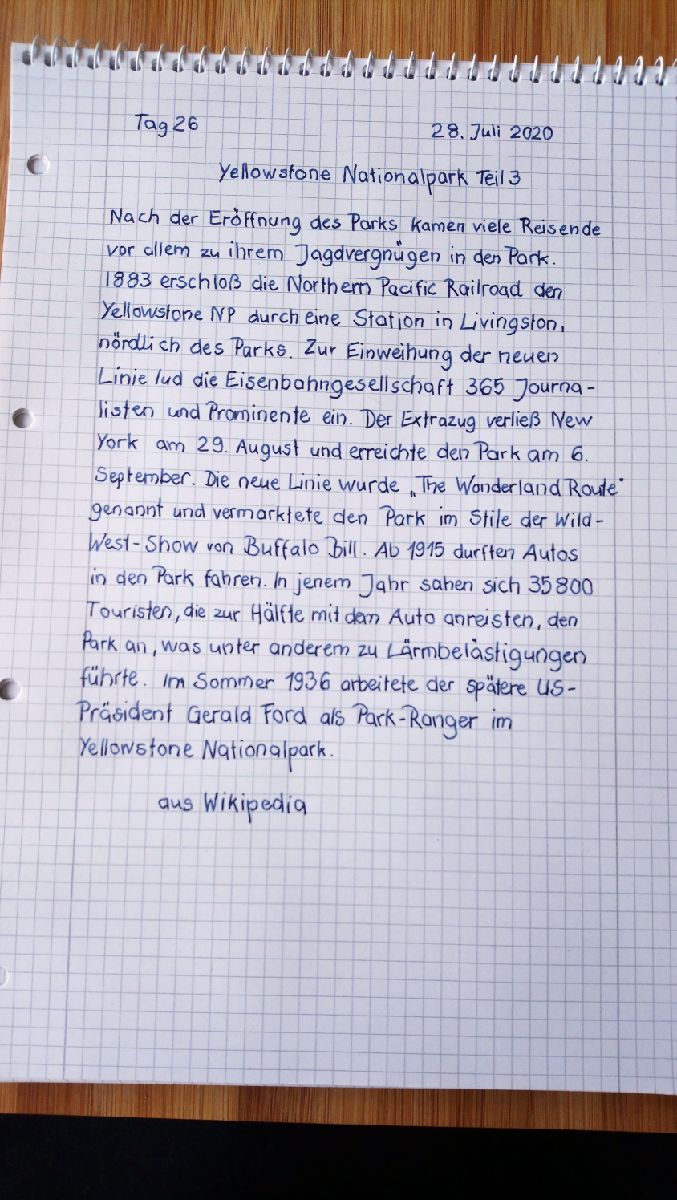 Tag 26 28. Juli 2020
Yellowstone Nationalpark Teil 3
Nach der Eröffnung des Parks kamen viele Reisende
vor allem zu ihrem Jagdvergnügen in den Park.
1883 erschloß die Northern Pacific Railroad den
Yellowstone NP durch eine Station in Livingston,
nördlich des Parks. Zur Einweihung der neuen
Linie lud die Eisenbahngesellschaft 365 Journa-
listen und Prominente ein. Der Extrazug verließ New
York am 29. August und erreichte den Park am 6.
September. Die neue Linie wurde „The Wonderland Route"
genannt und vermarktete den Park im Stile der Wild-
West-Show von Buffalo Bill. Ab 1915 durften Autos
in den Park fahren. In jenem Jahr sahen sich 35800
Touristen, die zur Hälfte mit dem Auto anreisten, den
Park an, was unter anderem zu Lärmbelästigungen
führte. Im Sommer 1936 arbeitete der spätere US-
Präsident Gerald Ford als Park-Ranger im
Yellowstone Nationalpark.
aus Wikipedia